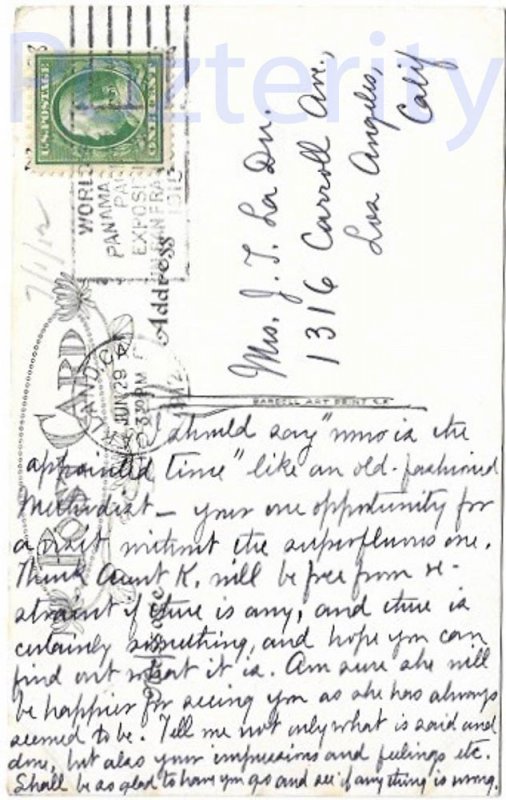 Pazterity
U.S. POSTAGE
ONE CENT
WORLD
PANAMA
PAC
EXPOSI
SAN FRAN
1915
7/1/12
Mrs. J. T. La Du.
1316 Carroll Av.,
Los Angeles,
Calif
Address
JUN 29
330 PM
1912
BARDELL ART PRINT S.F.
POST CARD
Message
I should say "now is the
appointed time" like an old-fashioned
Methodist – your one opportunity for
a visit without the superfluous one.
Think Aunt K. will be free from re-
straint if there is any, and there is
certainly something, and hope you can
find out what it is. Am sure she will
be happier for seeing you as she has always
seemed to be. Tell me not only what is said and
done, but also your impressions and feelings etc.
Shall be as glad to have you go and see if anything is wrong.